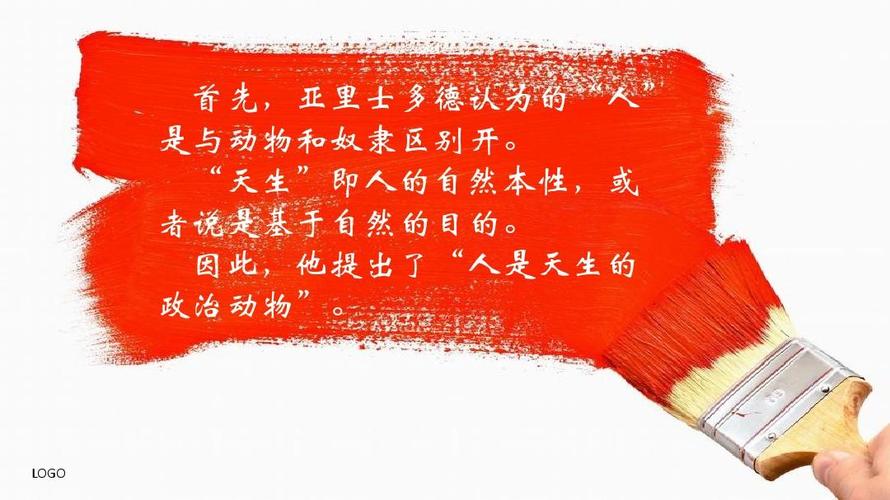 首先，亚里士多德认为的“人”
是与动物和奴隶区别开。
“天生”即人的自然本性，或
者说是基于自然的目的。
因此，他提出了“人是天生的
政治动物”。
LOGO